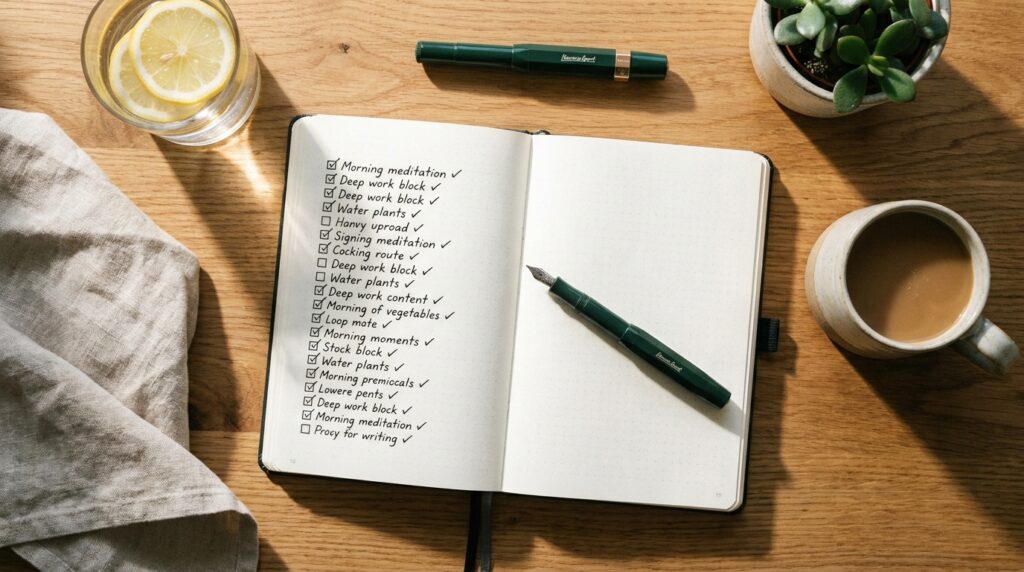 ☑ Morning meditation ✓
☑ Deep work block ✓
☑ Deep work block ✓
☑ Water plants ✓
☐ Hanvy uproad ✓
☑ Signing meditation ✓
☑ Cocking route ✓
☐ Deep work block ✓
☐ Water plants ✓
☑ Deep work content ✓
☑ Morning of vegetables ✓
☑ Loop mate ✓
☑ Morning moments ✓
☑ Stock block ✓
☑ Water plants ✓
☑ Morning premiccals ✓
☑ Lowere pents ✓
☑ Deep work block ✓
☑ Morning meditation ✓
☐ Procy for writing ✓